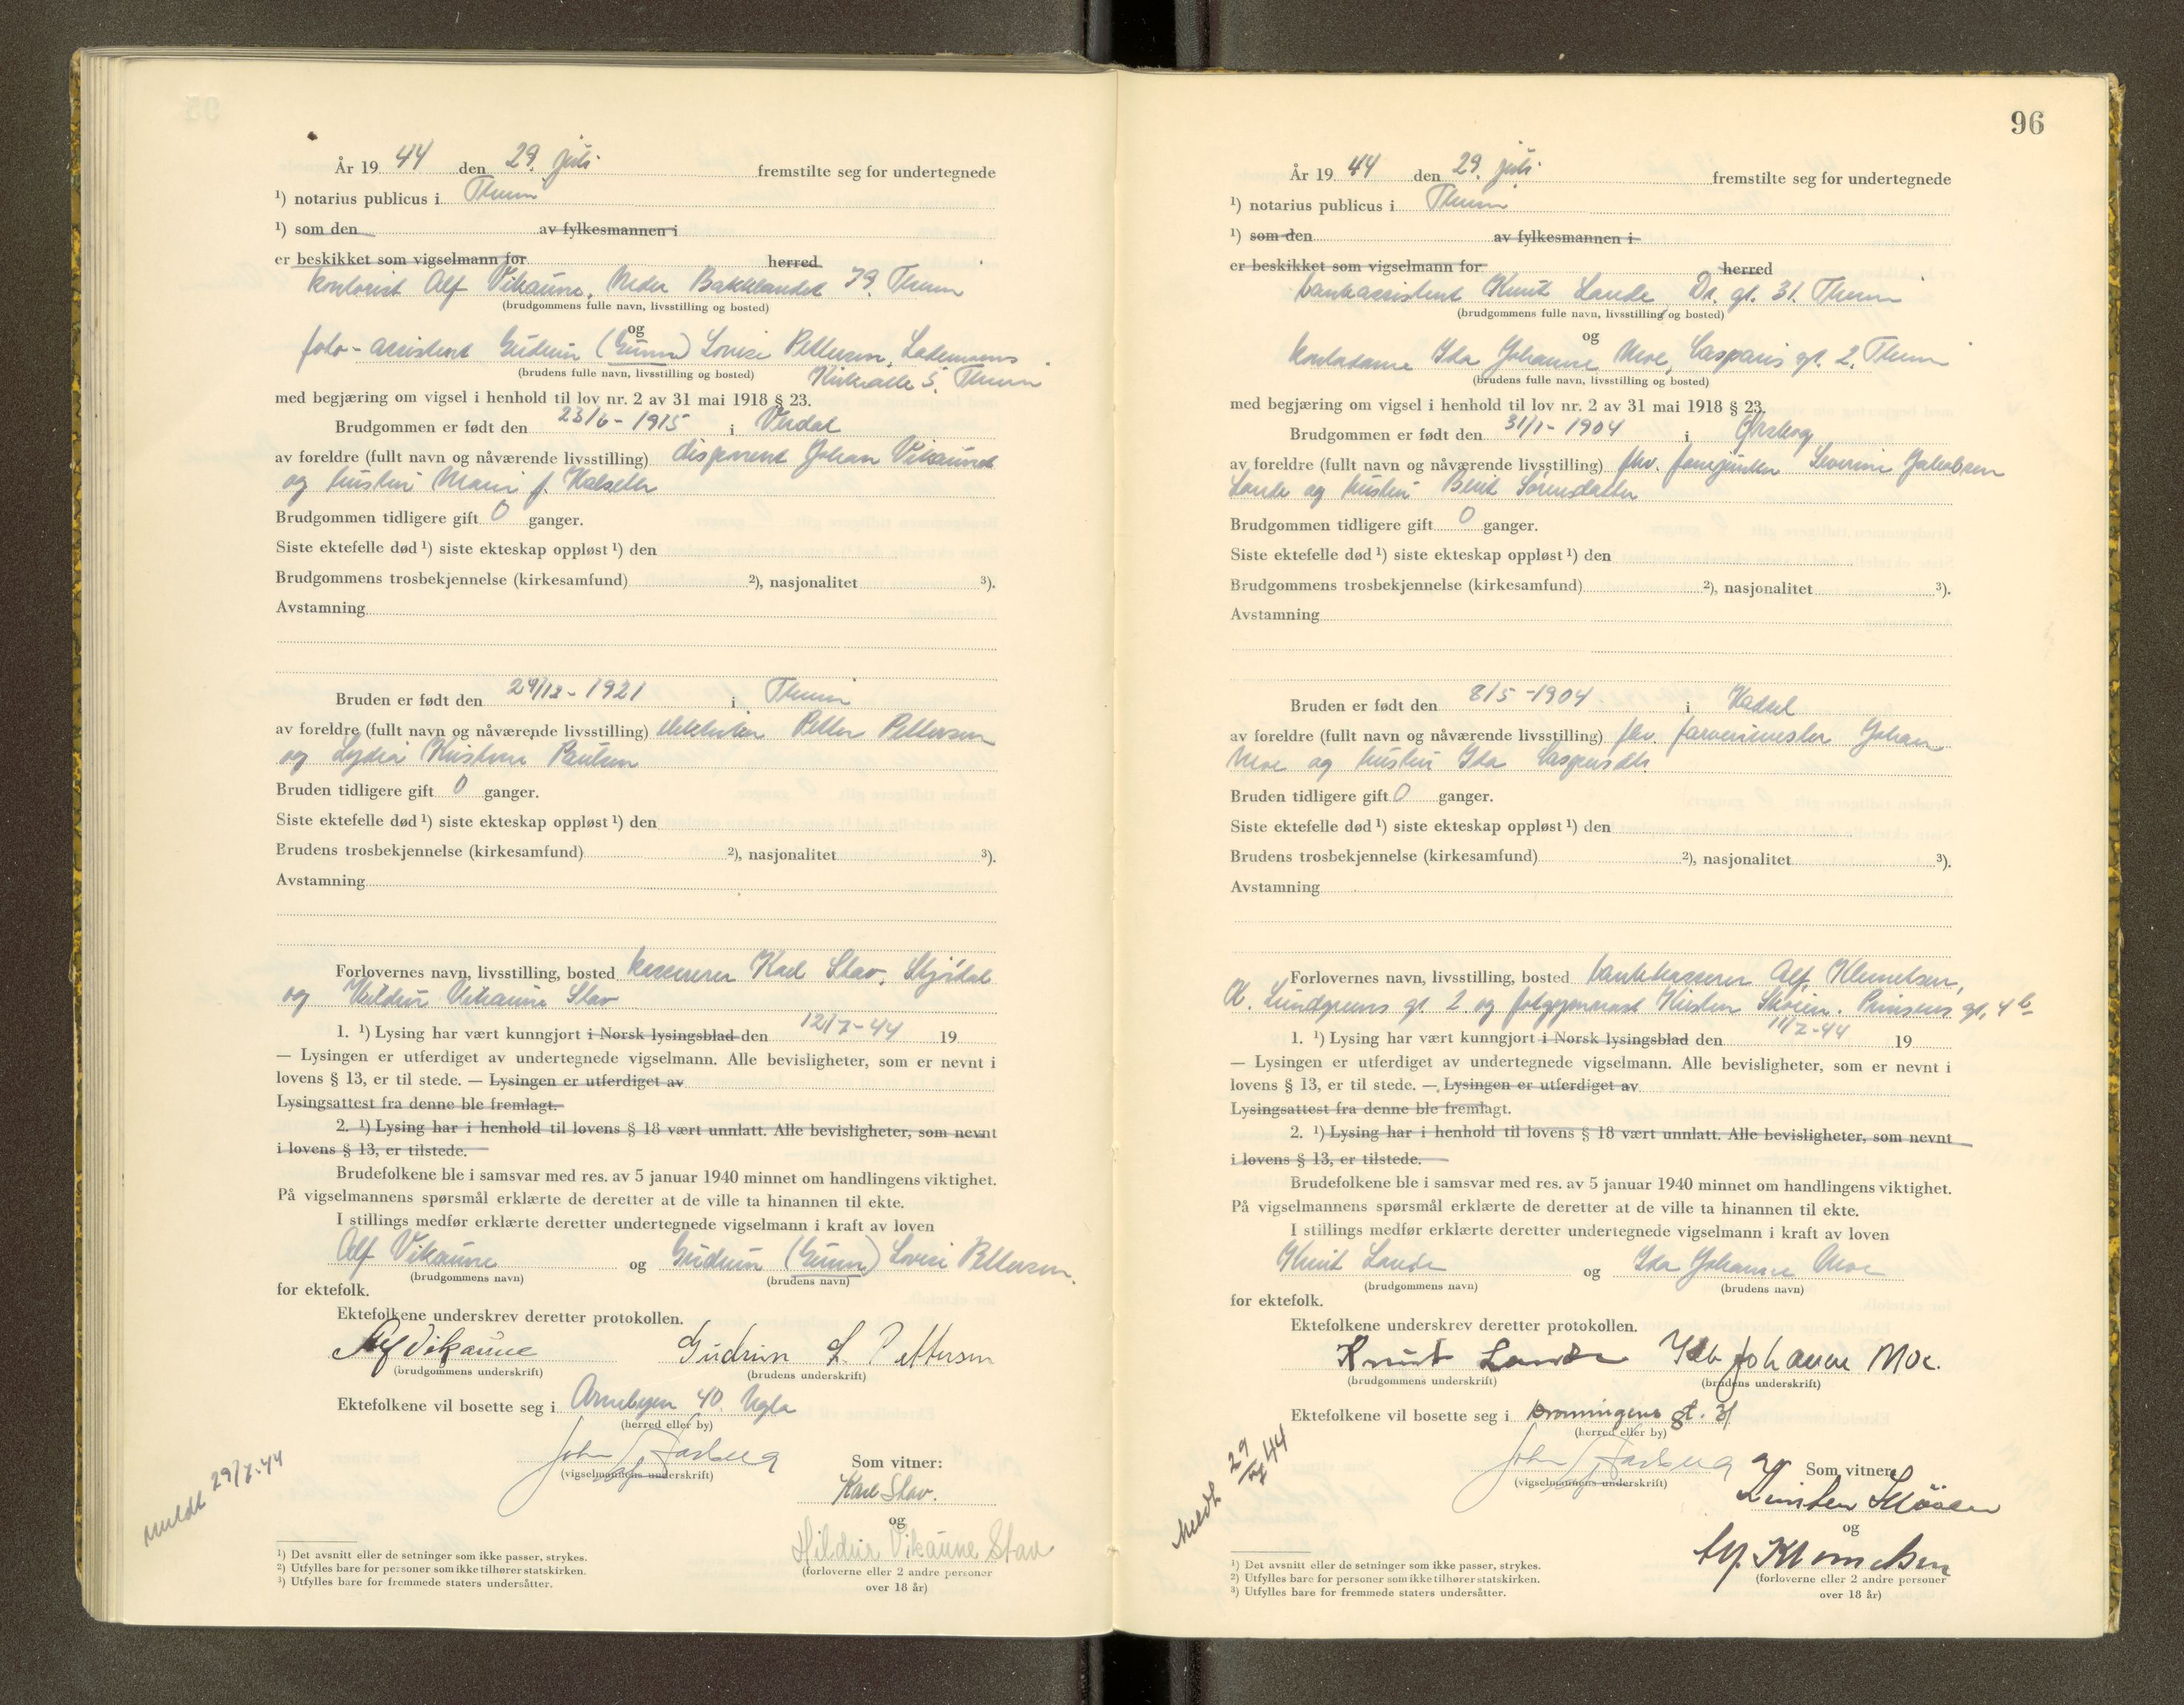 År 19 44 den 29. juli fremstilte seg for undertegnede
¹) notarius publicus i Thum
¹) som den av fylkesmannen i
er beskikket som vigselmann for herred
kontorist Alf Vikaune, Nedre Bakklandet 79. Thum
(brudgommens fulle navn, livsstilling og bosted)
og
foto-assistent Gudrun (Gunn) Lovise Pettersen, Lademoens
Kirkealle 5. Thum
(brudens fulle navn, livsstilling og bosted)
med begjæring om vigsel i henhold til lov nr. 2 av 31 mai 1918 § 23.
Brudgommen er født den 23/6 - 1915 i Verdal
av foreldre (fullt navn og nåværende livsstilling) disponent Johan Vikaune
og hustru Marie f. Halseth
Brudgommen tidligere gift 0 ganger.
Siste ektefelle død ¹) siste ekteskap oppløst ¹) den
Brudgommens trosbekjennelse (kirkesamfund) ²), nasjonalitet ³).
Avstamning
Bruden er født den 29/12 - 1921 i Thum
av foreldre (fullt navn og nåværende livsstilling) Petter Pettersen
og Lydia Kristine Paulsen
Bruden tidligere gift 0 ganger.
Siste ektefelle død ¹) siste ekteskap oppløst ¹) den
Brudens trosbekjennelse (kirkesamfund) ²), nasjonalitet ³).
Avstamning
Forlovernes navn, livsstilling, bosted kasserer Karl Stav, Stjørdal
og Hildur Vikaune Stav
1. ¹) Lysing har vært kunngjort i Norsk lysingsblad den 12/7-44 19
— Lysingen er utferdiget av undertegnede vigselmann. Alle bevisligheter, som er nevnt i
lovens § 13, er til stede. — Lysingen er utferdiget av
Lysingsattest fra denne ble fremlagt.
2. ¹) Lysing har i henhold til lovens § 18 vært unnlatt. Alle bevisligheter, som nevnt
i lovens § 13, er tilstede.
Brudefolkene ble i samsvar med res. av 5 januar 1940 minnet om handlingens viktighet.
På vigselmannens spørsmål erklærte de deretter at de ville ta hinannen til ekte.
I stillings medfør erklærte deretter undertegnede vigselmann i kraft av loven
Alf Vikaune og Gudrun (Gunn) Lovise Pettersen.
(brudgommens navn) (brudens navn)
for ektefolk.
Ektefolkene underskrev deretter protokollen.
Alf Vikaune Gudrun L. Pettersen
(brudgommens underskrift) (brudens underskrift)
Ektefolkene vil bosette seg i Arnebyen 40. Ugla
(herred eller by)
(vigselmannens underskrift)
Som vitner:
Karl Stav.
og
Hildur Vikaune Stav
(forloverne eller 2 andre personer
over 18 år)
meldt 29/7-44
¹) Det avsnitt eller de setninger som ikke passer, strykes.
²) Utfylles bare for personer som ikke tilhører statskirken.
³) Utfylles bare for fremmede staters undersåtter.
96
År 19 44 den 29. juli fremstilte seg for undertegnede
¹) notarius publicus i Thum
¹) som den av fylkesmannen i
er beskikket som vigselmann for herred
bankassistent Knut Lande, Dr. gt. 31. Thum
(brudgommens fulle navn, livsstilling og bosted)
og
kontordame Ida Johanne Moe, Casparis gt. 2. Thum
(brudens fulle navn, livsstilling og bosted)
med begjæring om vigsel i henhold til lov nr. 2 av 31 mai 1918 § 23.
Brudgommen er født den 31/1 - 1904 i Ørskog
av foreldre (fullt navn og nåværende livsstilling) fhv. Severin Jakobsen
Lande og hustru Berit Sørensdatter
Brudgommen tidligere gift 0 ganger.
Siste ektefelle død ¹) siste ekteskap oppløst ¹) den
Brudgommens trosbekjennelse (kirkesamfund) ²), nasjonalitet ³).
Avstamning
Bruden er født den 8/5 - 1904 i Hadsel
av foreldre (fullt navn og nåværende livsstilling) fhv. farverimester Johan
Moe og hustru Ida Caspersdtr.
Bruden tidligere gift 0 ganger.
Siste ektefelle død ¹) siste ekteskap oppløst ¹) den
Brudens trosbekjennelse (kirkesamfund) ²), nasjonalitet ³).
Avstamning
Forlovernes navn, livsstilling, bosted bankkasserer Alf Klemetsen,
H. Lundgreens gt. 2 og Kirsten Skøien. Prinsens gt. 4 b
1. ¹) Lysing har vært kunngjort i Norsk lysingsblad den 11/7-44 19
— Lysingen er utferdiget av undertegnede vigselmann. Alle bevisligheter, som er nevnt i
lovens § 13, er til stede. — Lysingen er utferdiget av
Lysingsattest fra denne ble fremlagt.
2. ¹) Lysing har i henhold til lovens § 18 vært unnlatt. Alle bevisligheter, som nevnt
i lovens § 13, er tilstede.
Brudefolkene ble i samsvar med res. av 5 januar 1940 minnet om handlingens viktighet.
På vigselmannens spørsmål erklærte de deretter at de ville ta hinannen til ekte.
I stillings medfør erklærte deretter undertegnede vigselmann i kraft av loven
Knut Lande og Ida Johanne Moe
(brudgommens navn) (brudens navn)
for ektefolk.
Ektefolkene underskrev deretter protokollen.
Knut Lande Ida Johanne Moe.
(brudgommens underskrift) (brudens underskrift)
Ektefolkene vil bosette seg i Dronningens gt. 31
(herred eller by)
(vigselmannens underskrift)
Som vitner:
Kirsten Skøien
og
Alf Klemetsen
(forloverne eller 2 andre personer
over 18 år)
Meldt 29/7 44
¹) Det avsnitt eller de setninger som ikke passer, strykes.
²) Utfylles bare for personer som ikke tilhører statskirken.
³) Utfylles bare for fremmede staters undersåtter.